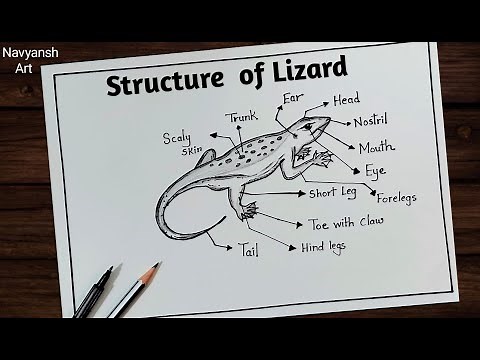 Navyansh
Art
Structure of Lizard
Ear
Head
Trunk
Nostril
Scaly
Skin
Mouth
Eye
Short Leg
Forelegs
Toe with Claw
Hind legs
Tail